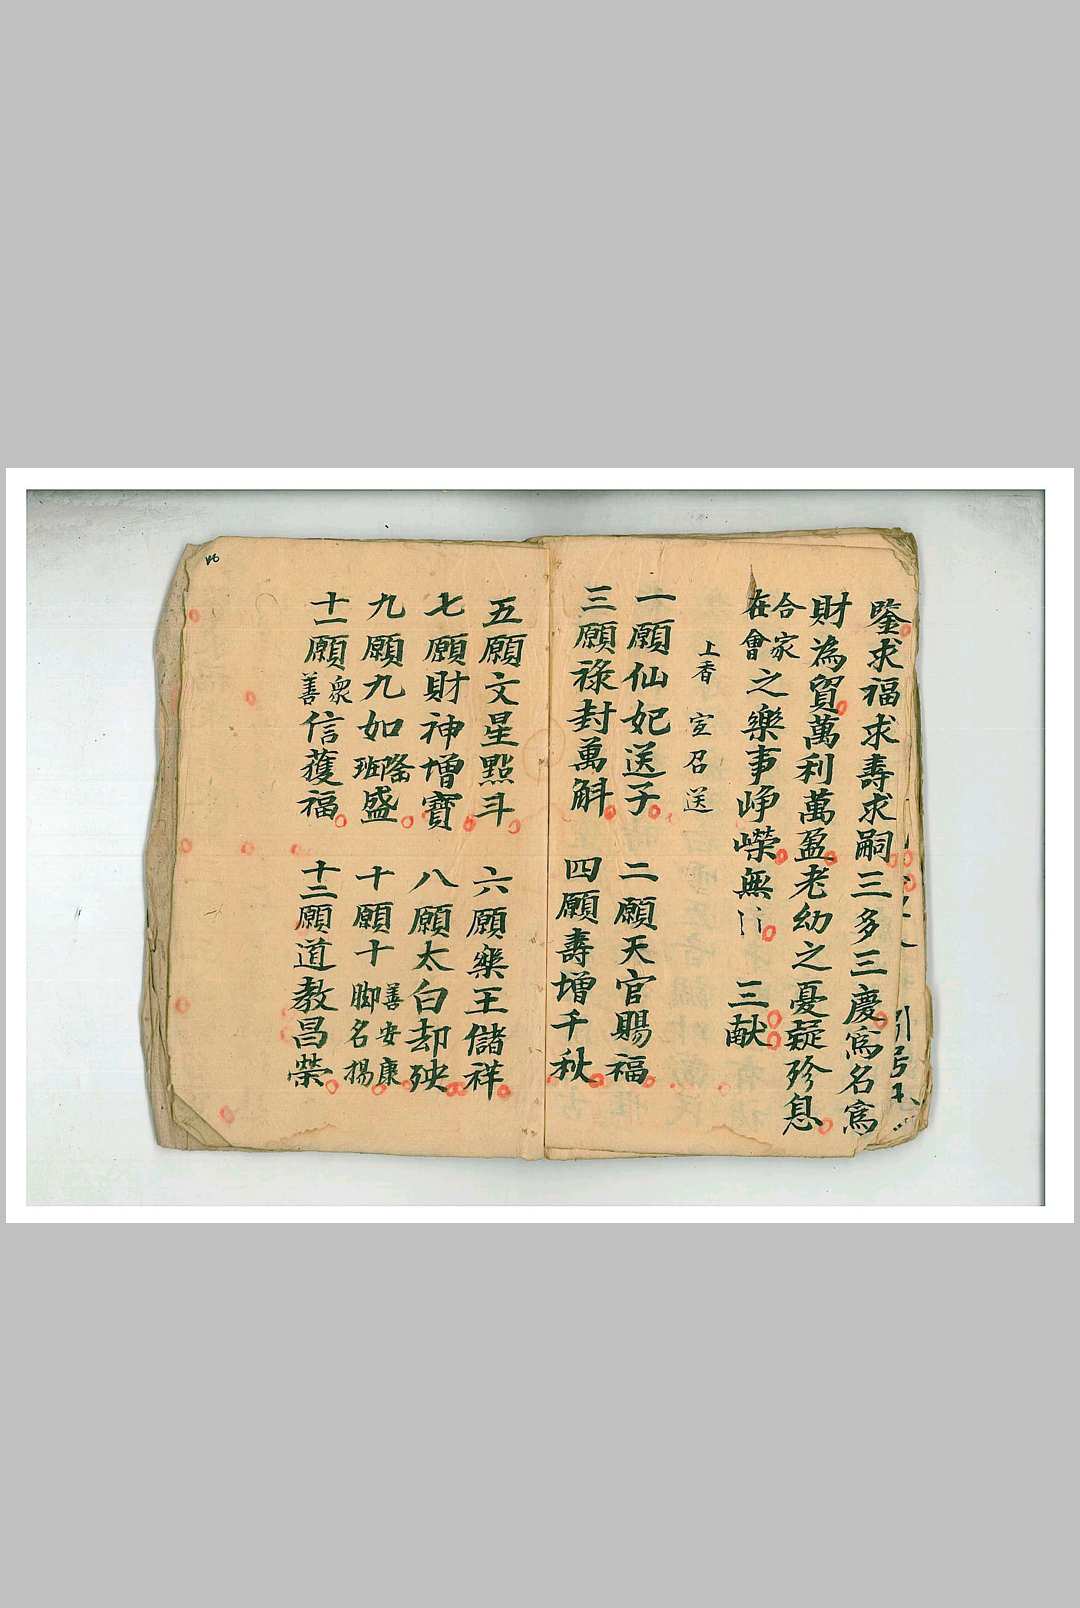 鑒求福求壽求嗣三多三慶為名為
財為貿萬利萬盈老幼之憂疑殄息
合家
在會
之樂事崢嶸無 三献
上香 宣召送
一願仙妃送子 二願天官賜福
三願祿封萬斛 四願壽增千秋
五願文星點斗 六願藥王儲祥
七願財神增寶 八願太白却殃
九願九如
隆
班
盛 十願十
善安康
脚名揚
十一願
衆
善
信獲福 十二願道教昌榮